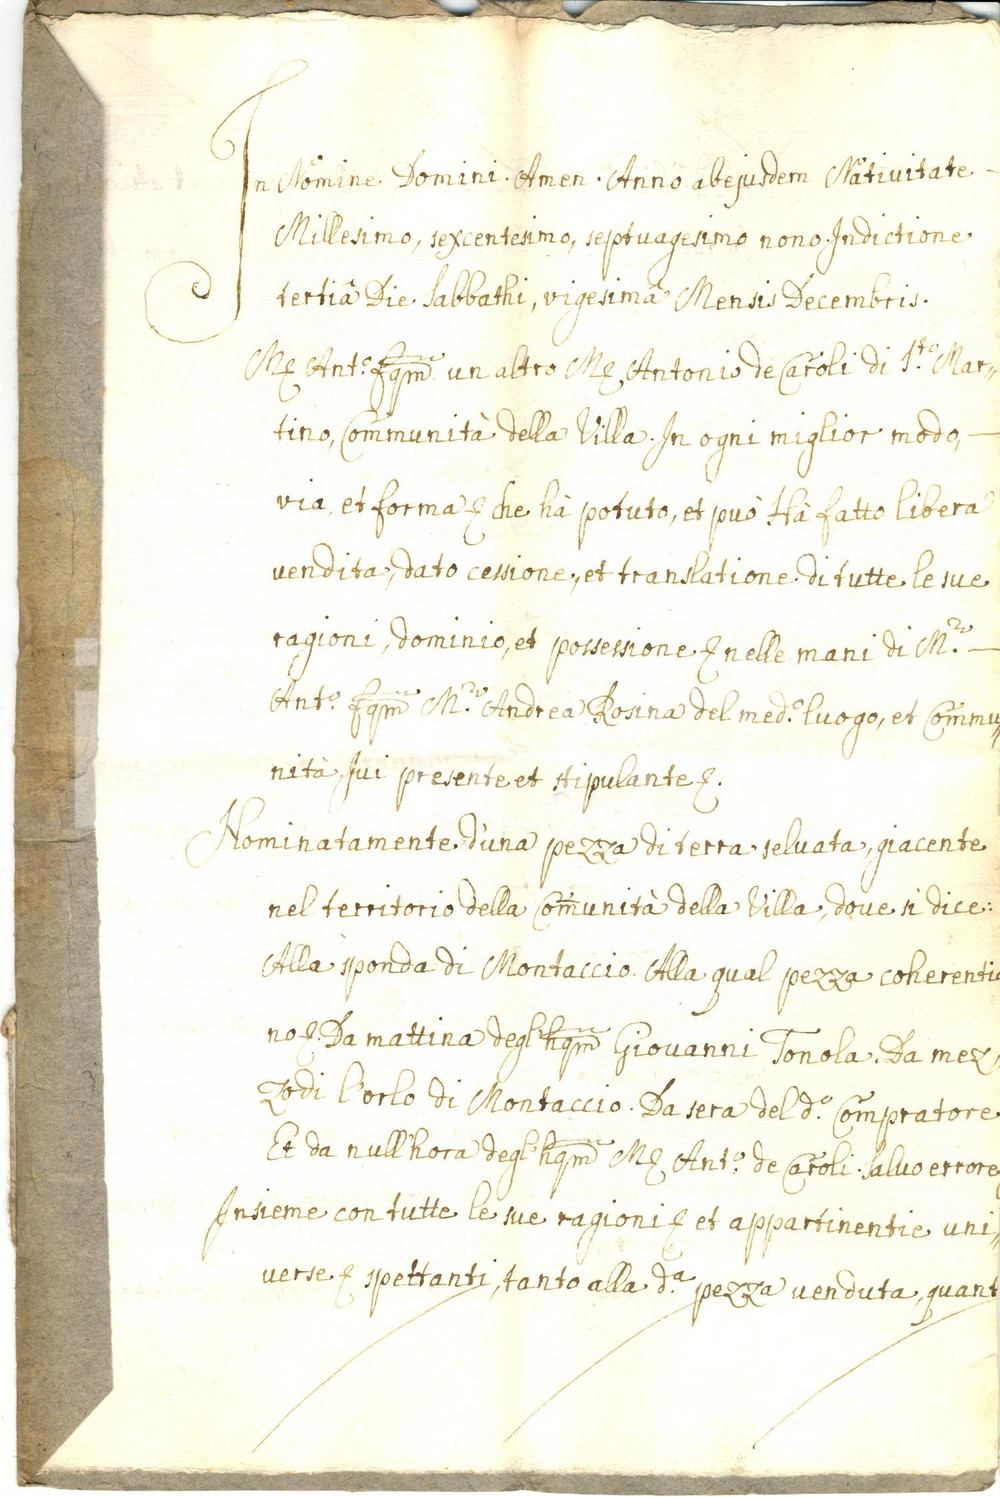 In Nomine Domini. Amen. Anno ab ejusdem Nativitate
Millesimo, sexcentesimo, septuagesimo nono. Indictione
tertiâ Die Sabbathi, vigesimâ Mensis Decembris.
Mʒ Antº. fqm un altro Mʒ Antonio de Caroli di Sto. Mar„
tino, Communità della Villa. In ogni miglior modo, —
via, et forma ʒ che hà potuto, et può Hà fatto libera
vendita, dato cessione, et translatione di tutte le sue
ragioni, dominio, et possessione ʒ nelle mani di Mro. —
Antº. fqm Mro. Andrea Rosina del medº. luogo, et Commu„
nità, Ivi presente et stipulante ʒ.
Nominatamente d'una pezza di terra selvata, giacente
nel territorio della Comunità della Villa, dove si dice:
Alla sponda di Montaccio. Alla qual pezza coherentia
no ʒ. Da mattina degl' hqm Giovanni Tonola. Da mez„
zodi l'orlo di Montaccio. Da sera del dº. Compratore
Et da null'hora degl' hqm Mʒ Antº. de Caroli. salvo errore
Insieme con tutte le sue ragioni ʒ et appartinentie uni„
verse ʒ spettanti, tanto alla dª. pezza venduta, quant